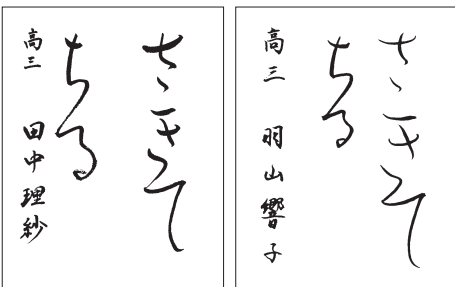 さきて
ちる
高三 羽山響子
さきて
ちる
高三 田中理紗